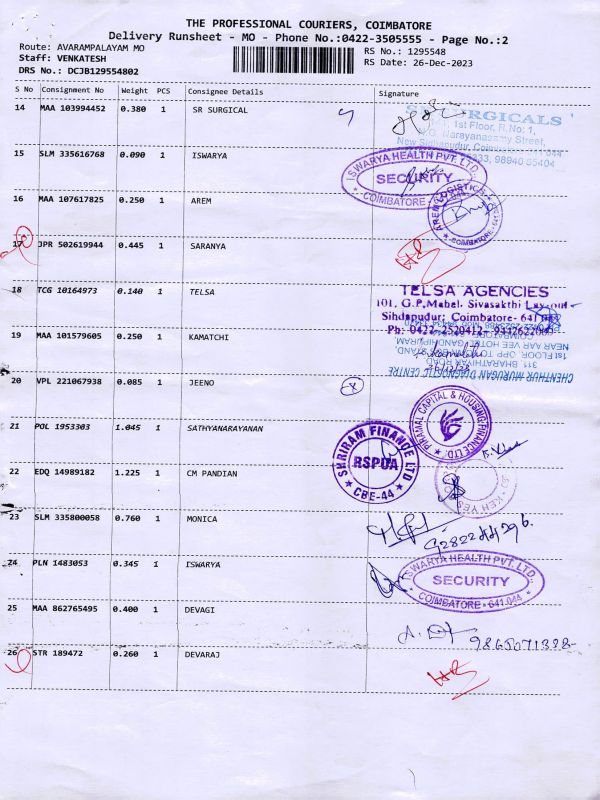 THE PROFESSIONAL COURIERS, COIMBATORE
Delivery Runsheet - MO - Phone No.:0422-3505555 - Page No.:2
Route: AVARAMPALAYAM MO
RS No.: 1295548
Staff: VENKATESH
RS Date: 26-Dec-2023
DRS No.: DCJB129554802
S No Consignment No Weight PCS Consignee Details Signature
14 MAA 103994452 0.380 1 SR SURGICAL
1st Floor, R.No: 1,
15 SLM 335616768 0.090 1 ISWARYA
ISWARYA HEALTH PVT. LTD.
SECURITY
COIMBATORE
16 MAA 107617825 0.250 1 AREM
AREM LOGISTICS
COIMBATORE
17 JPR 502619944 0.445 1 SARANYA
18 TCG 10164973 0.140 1 TELSA
TELSA AGENCIES
101, G.P.Mabel, Sivasakthi
Sihdapudur; Coimbatore- 641
Ph: 0422-2520412
19 MAA 101579605 0.250 1 KAMATCHI
CHENTHUR MURUGAN DIAGNOSTIC CENTRE
311, BHARATHIYAR ROAD
20 VPL 221067938 0.085 1 JEENO
21 POL 1953303 1.045 1 SATHYANARAYANAN
PIRAMAL CAPITAL & HOUSING FINANCE LTD.
SHRIRAM FINANCE LTD
RSPUA
CBE-44
22 EDQ 14989182 1.225 1 CM PANDIAN
23 SLM 335800058 0.760 1 MONICA
24 PLN 1483053 0.345 1 ISWARYA
ISWARYA HEALTH PVT. LTD.
SECURITY
COIMBATORE - 641 044
25 MAA 862765495 0.400 1 DEVAGI
26 STR 189472 0.260 1 DEVARAJ